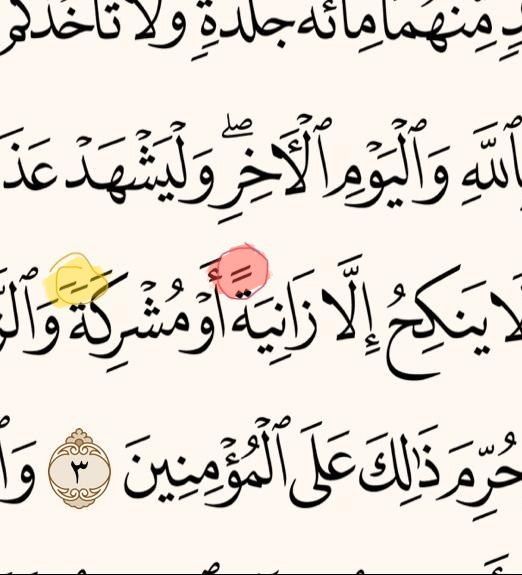 مِّنْهُمَا مِا۟ئَةَ جَلْدَةٍ وَلَا تَأْخُذْكُم
بِٱللَّهِ وَٱلْيَوْمِ ٱلْأَخِرِ ۖ وَلْيَشْهَدْ عَذَ
لَا يَنكِحُ إِلَّا زَانِيَةً أَوْ مُشْرِكَةً وَٱلزَّ
حُرِّمَ ذَٰلِكَ عَلَى ٱلْمُؤْمِنِينَ ٣ وَٱ